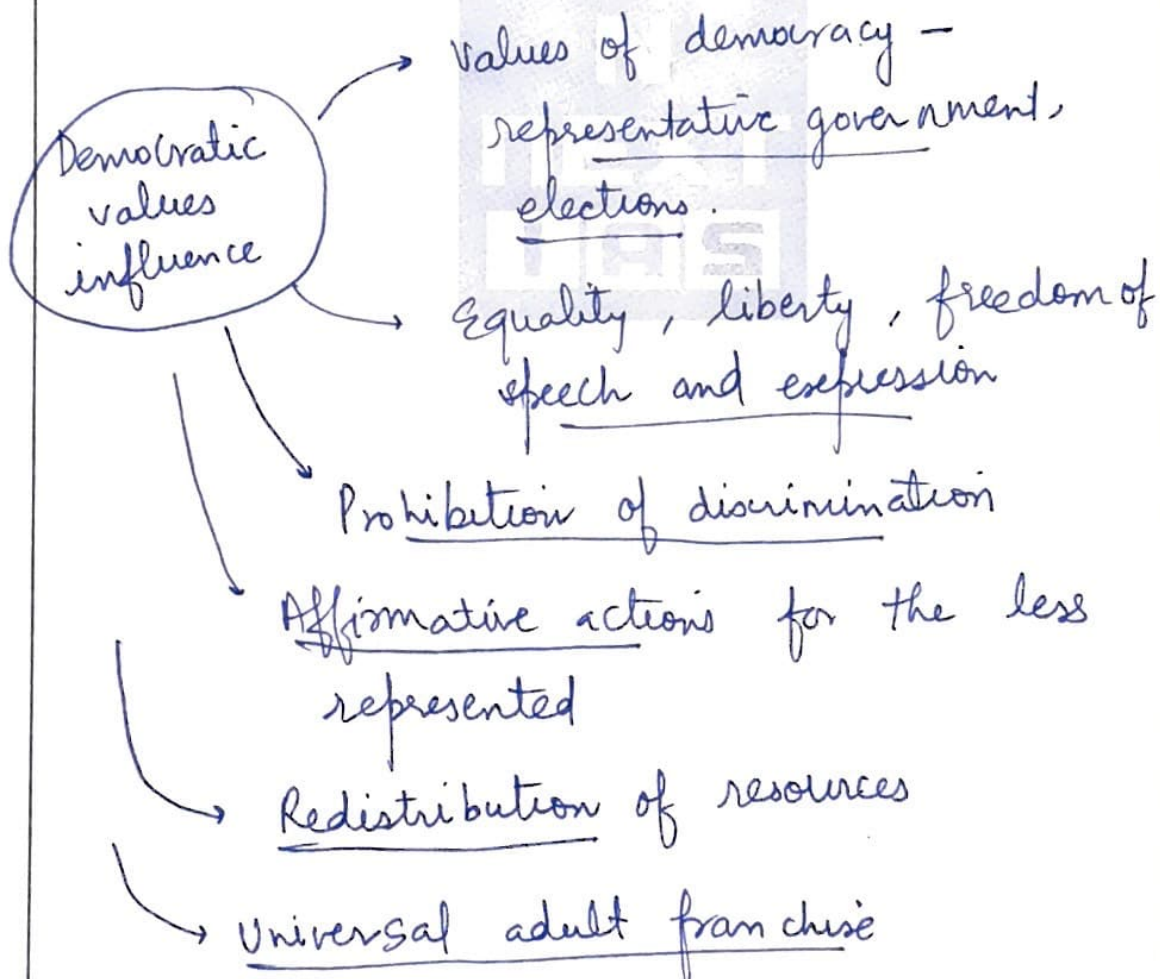 Democratic
values
influence
Values of democracy -
representative government,
elections.
Equality, liberty, freedom of
speech and expression
Prohibition of discrimination
Affirmative actions for the less
represented
Redistribution of resources
Universal adult franchise
NEXT
IAS